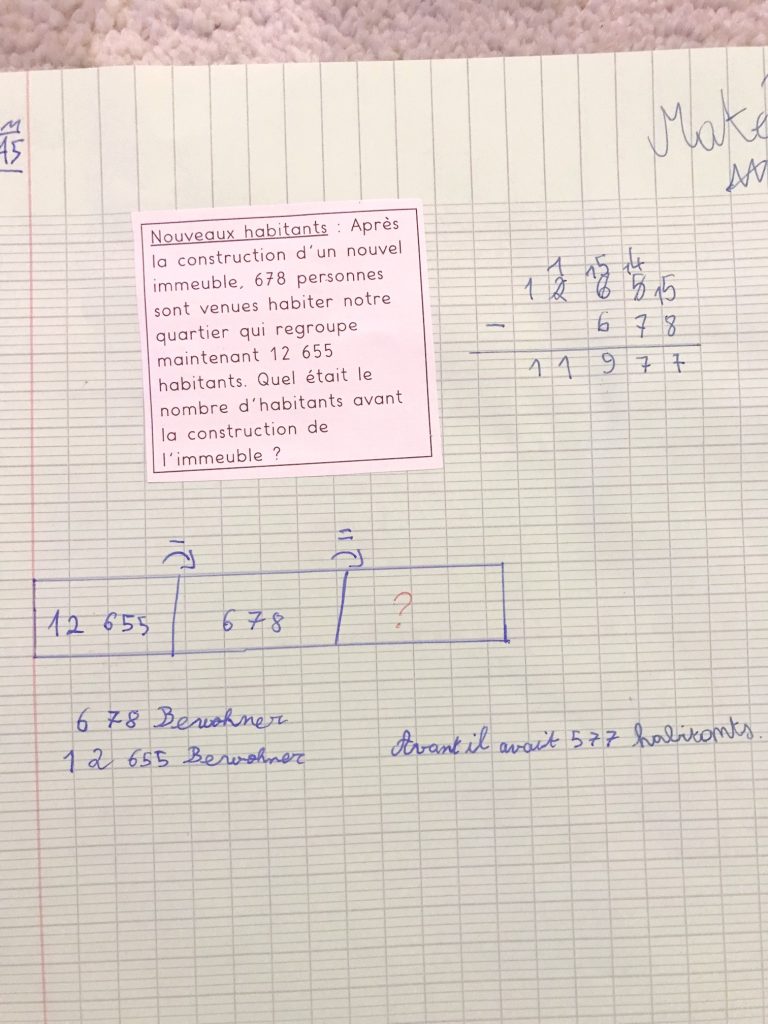 M
15
Maté
Nouveaux habitants : Après
la construction d'un nouvel
immeuble, 678 personnes
sont venues habiter notre
quartier qui regroupe
maintenant 12 655
habitants. Quel était le
nombre d'habitants avant
la construction de
l'immeuble ?
1 15 14
1 2 6 5 15
- 6 7 8
1 1 9 7 7
- =
12 655 678 ?
678 Bewohner
12 655 Bewohner
Avant il avait 577 habitants.